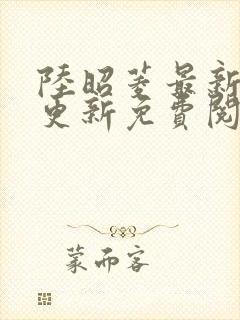 陸昭菱最新
更新免費閱
蒙而客